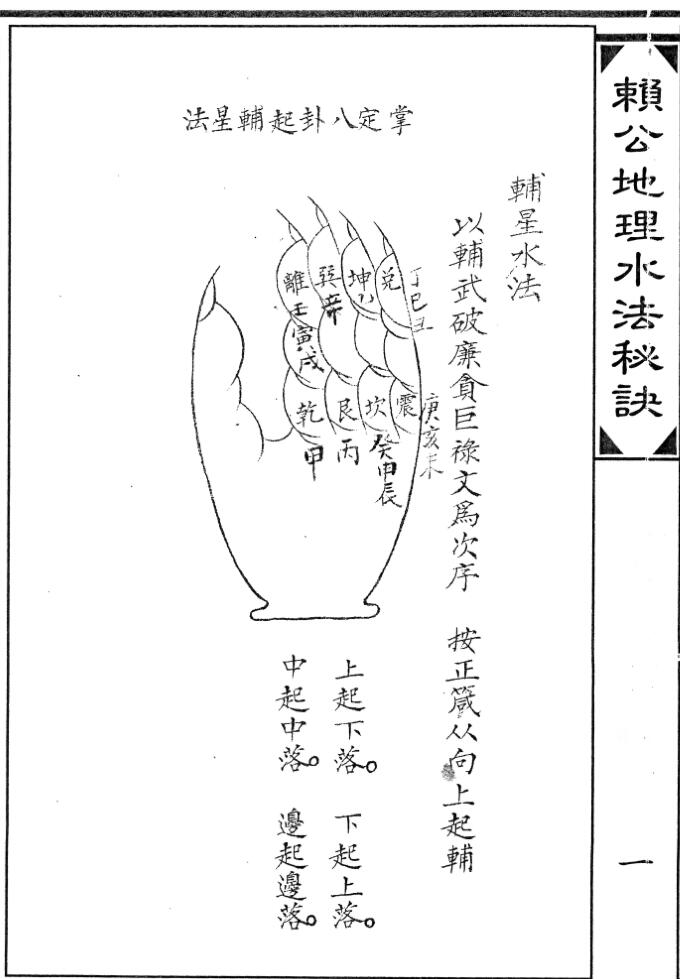 賴公地理水法秘訣
一
掌定八卦起輔星法
輔星水法
以輔武破廉貪巨祿文爲次序 按正箴从向上起輔
兌丁巳丑
坤乙
巽辛
離壬寅戌
震庚亥未
坎癸申辰
艮丙
乾甲
上起下落。 下起上落。
中起中落。 邊起邊落。